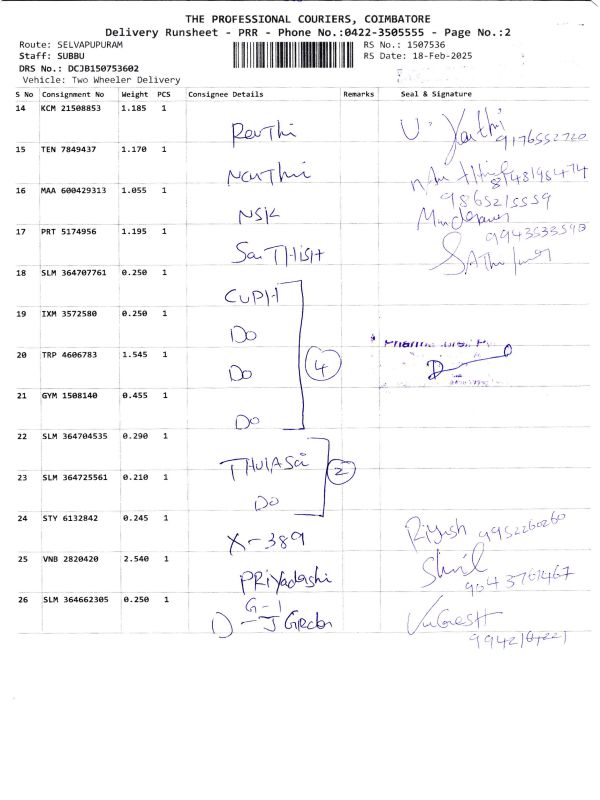 THE PROFESSIONAL COURIERS, COIMBATORE
Delivery Runsheet - PRR - Phone No.:0422-3505555 - Page No.:2
Route: SELVAPUPURAM RS No.: 1507536
Staff: SUBBU RS Date: 18-Feb-2025
DRS No.: DCJB150753602
Vehicle: Two Wheeler Delivery
S No Consignment No Weight PCS Consignee Details Remarks Seal & Signature
14 KCM 21508853 1.185 1
Revthi 9176552720
15 TEN 7849437 1.170 1
16 MAA 600429313 1.055 1
NSK 9865215559
17 PRT 5174956 1.195 1
SaiTHisH
18 SLM 364707761 0.250 1
CUPH
19 IXM 3572580 0.250 1
Do
20 TRP 4606783 1.545 1
Do 4
21 GYM 1508140 0.455 1
Do
22 SLM 364704535 0.290 1
THUlASai 2
23 SLM 364725561 0.210 1
Do
24 STY 6132842 0.245 1
X-389 Riyush 9952260260
25 VNB 2820420 2.540 1
PRiYadashi 9043761467
26 SLM 364662305 0.250 1
G-1